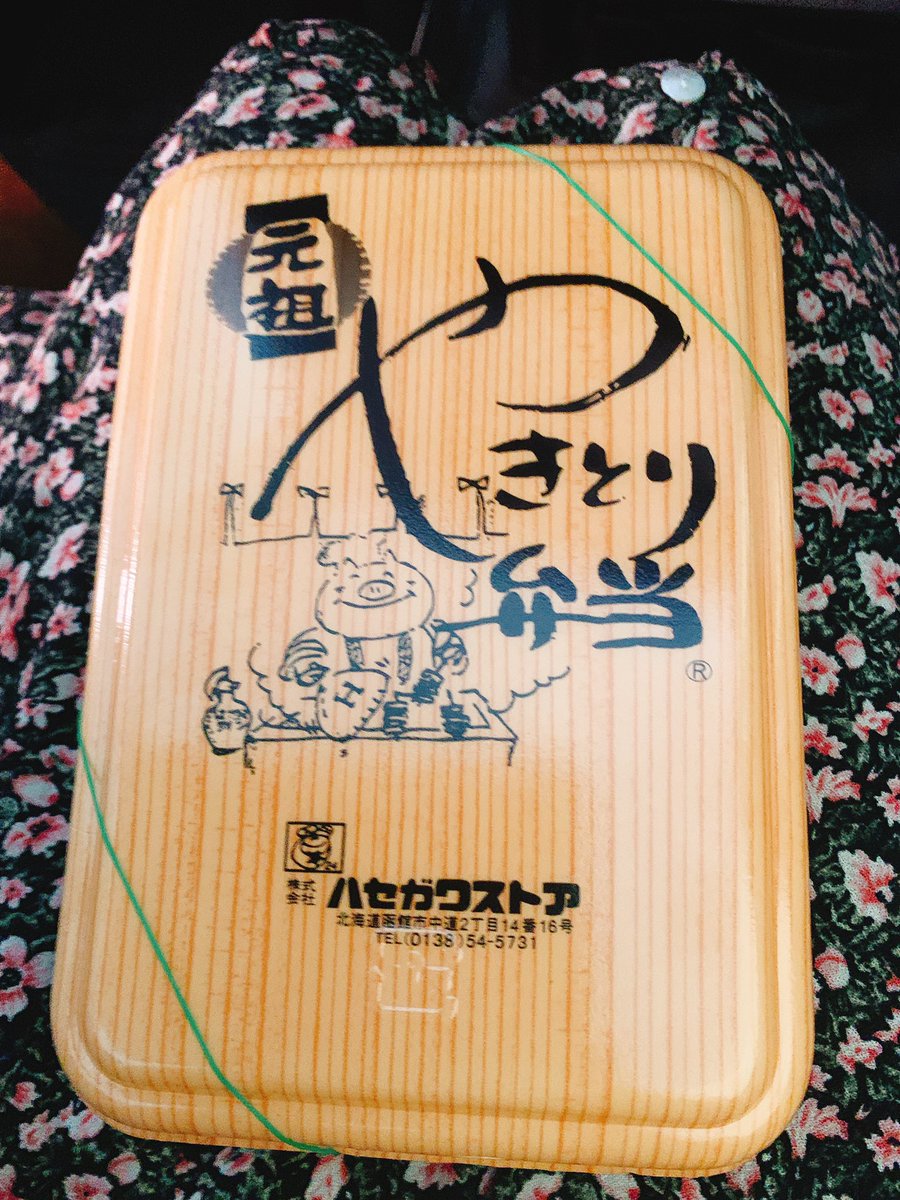 元祖
やきとり
弁当
®
株式会社 ハセガワストア
北海道函館市中道2丁目14番16号
TEL(0138)54-5731